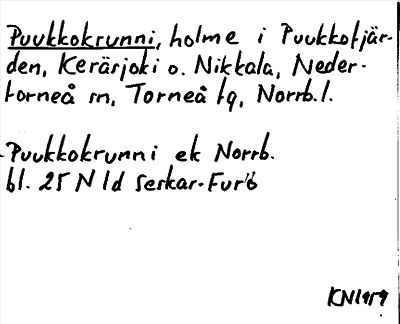 Puukkokrunni, holme i Puukkofjär-
den, Keräsjoki o. Nikkala, Neder-
torneå sn, Torneå tg, Norrb.l.
Puukkokrunni ek Norrb.
bl. 25 N 1d Seskar-Furö
KN1959